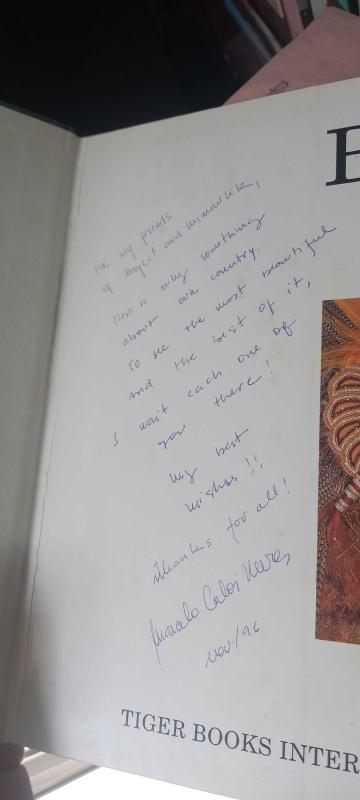 To my friends
of Project and
This is only something
about our country.
To see the most beautiful
and the best of it,
I wait each one of
you there!
My best
wishes!!
Thanks for all!
Marcelo
Nov/96
TIGER BOOKS INTER